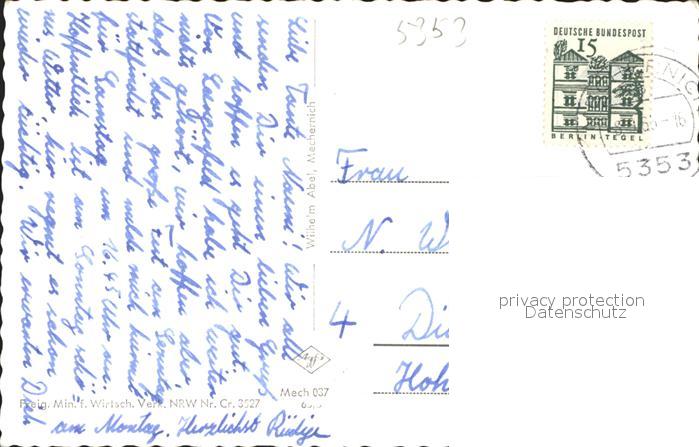 5353
DEUTSCHE BUNDESPOST
15
BERLIN-TEGEL
5353
Liebe Tante Naemi! Wir alle
senden Dir einen lieben Gruß
und hoffen es geht Dir gut.
Von Langerfeld habe ich weiter
nichts gehört, wir hoffen aber
das das große Fest am Samstag
stattfindet und melde mich hiermit
für Samstag um 16.45 Uhr an.
Hoffentlich ist am Sonntag schö-
nes Wetter, hier regnet es schon
wieder richtig. Wir erwarten Dich
am Montag. Herzlichst Rüdiger
Wilhelm Abel, Mechernich
Frau
N. W
4 Dü
Hoh
Agfa
Mech 037
Freig. Min. f. Wirtsch. Verk. NRW Nr. Cr. 3527
privacy protection
Datenschutz